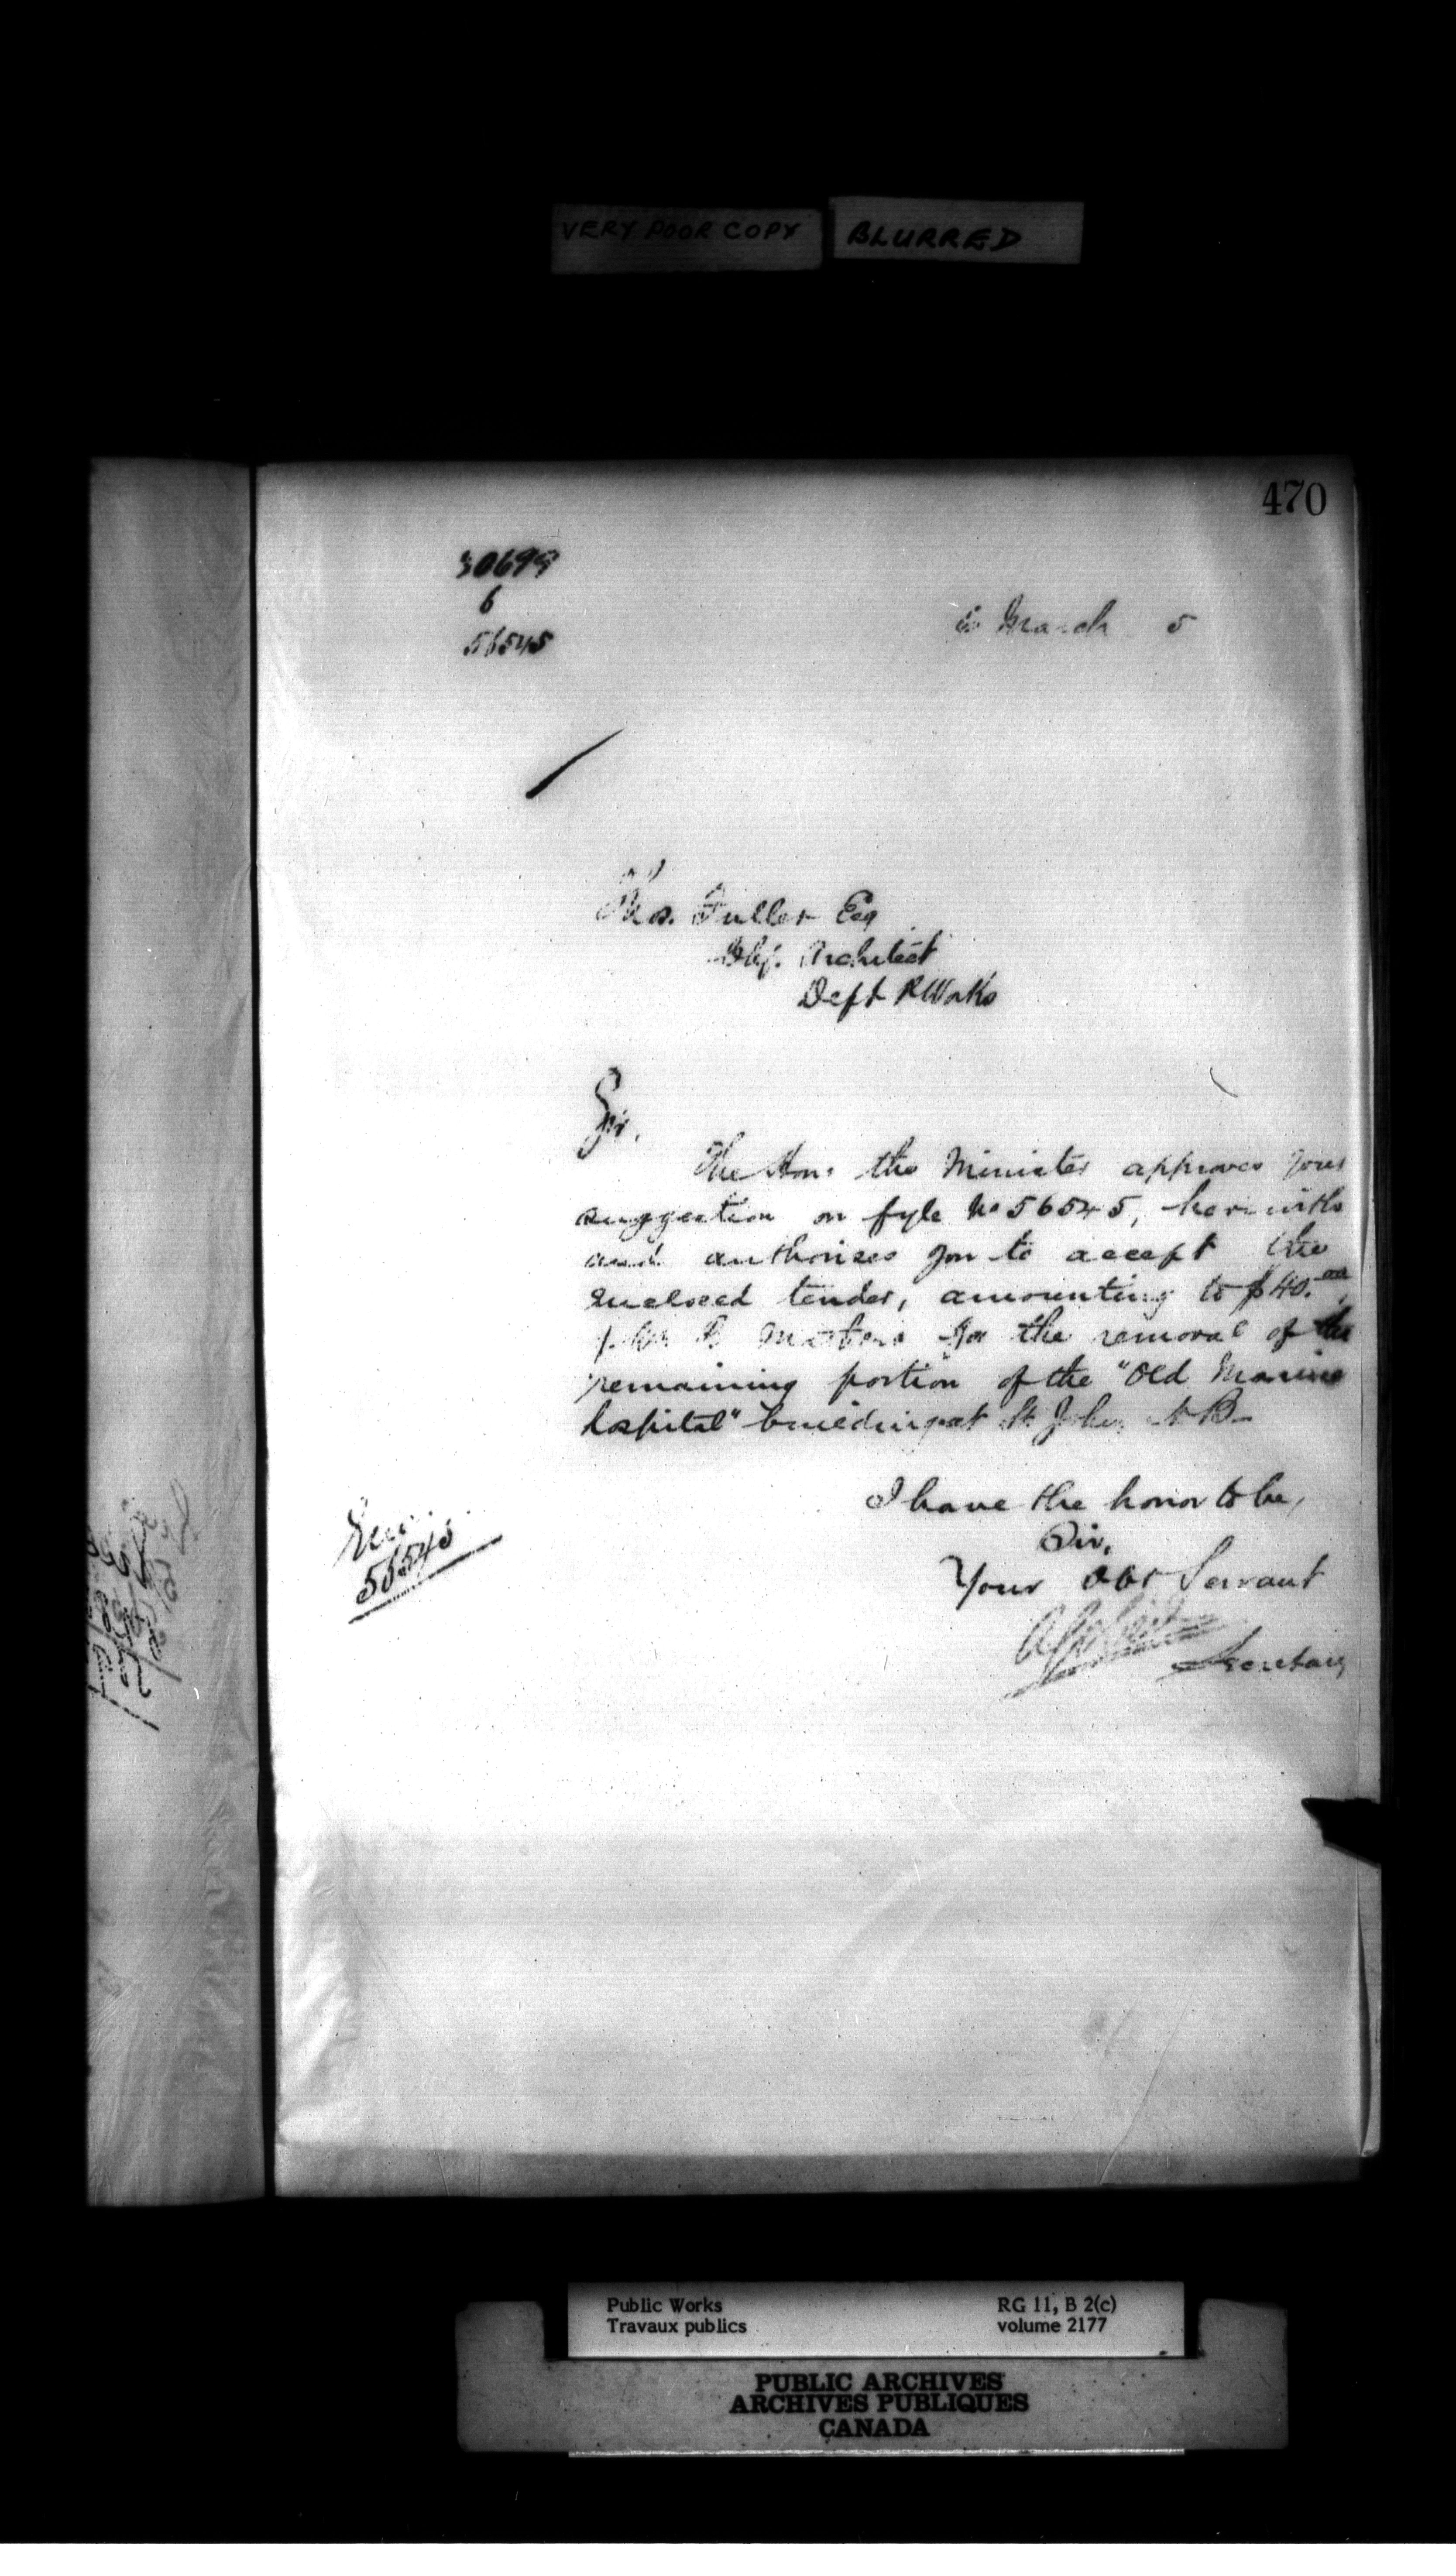 VERY POOR COPY BLURRED
470
30699
6
56545
March 5
Thos. Fuller Esq
Chf. Architect
Dept P Works
Sir,
The Hon: the Minister approves your
suggestion on fyle No 56545, herewith
and authorises you to accept the
enclosed tender, amounting to $40.00
for the removal of the
remaining portion of the "Old Marine
hospital" building at St John N B
I have the honor to be,
Sir,
Your Obt Servant
Secretary
56545
Public Works
Travaux publics
RG 11, B 2(c)
volume 2177
PUBLIC ARCHIVES
ARCHIVES PUBLIQUES
CANADA